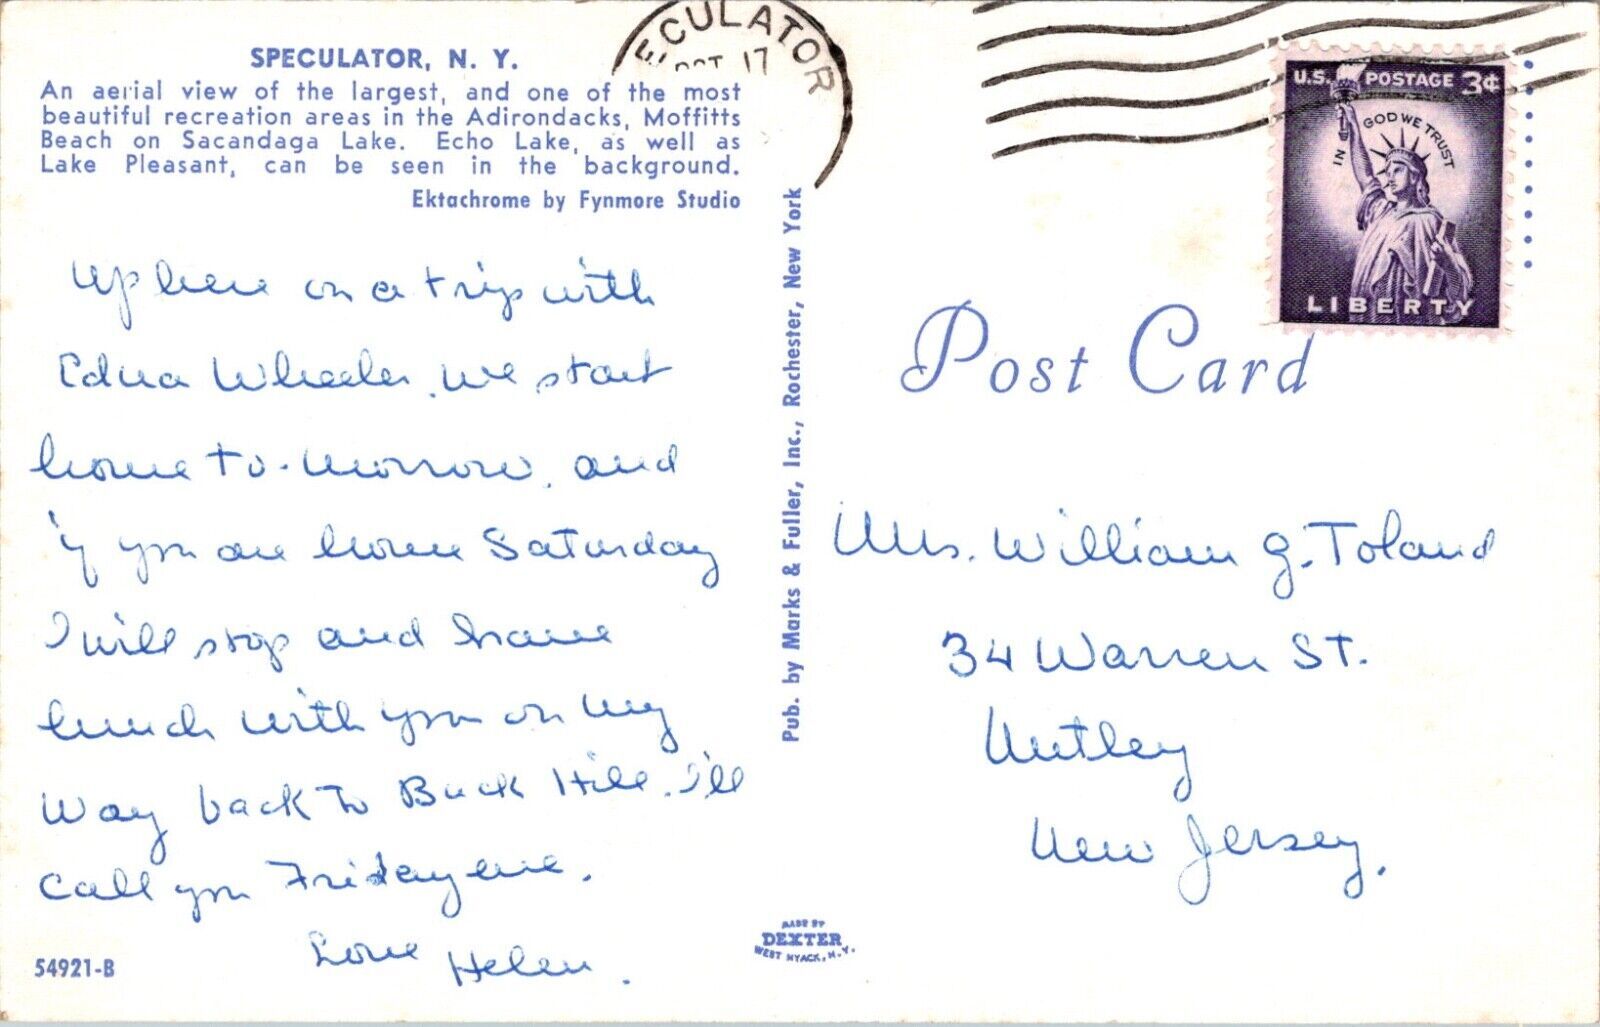 SPECULATOR, N. Y.
An aerial view of the largest, and one of the most
beautiful recreation areas in the Adirondacks, Moffitts
Beach on Sacandaga Lake. Echo Lake, as well as
Lake Pleasant, can be seen in the background.
Ektachrome by Fynmore Studio
Up here on a trip with
Edna Wheeler. We start
home to-morrow, and
if you are home Saturday
I will stop and have
lunch with you on my
way back to Buck Hill. I'll
call you Friday eve.
Love Helen.
54921-B
Pub. by Marks & Fuller, Inc., Rochester, New York
MADE BY
DEXTER
WEST NYACK, N.Y.
ECULATOR
OCT 17
U.S. POSTAGE 3¢
IN GOD WE TRUST
LIBERTY
Post Card
Mrs. William G. Toland
34 Warren St.
Nutley
New Jersey.